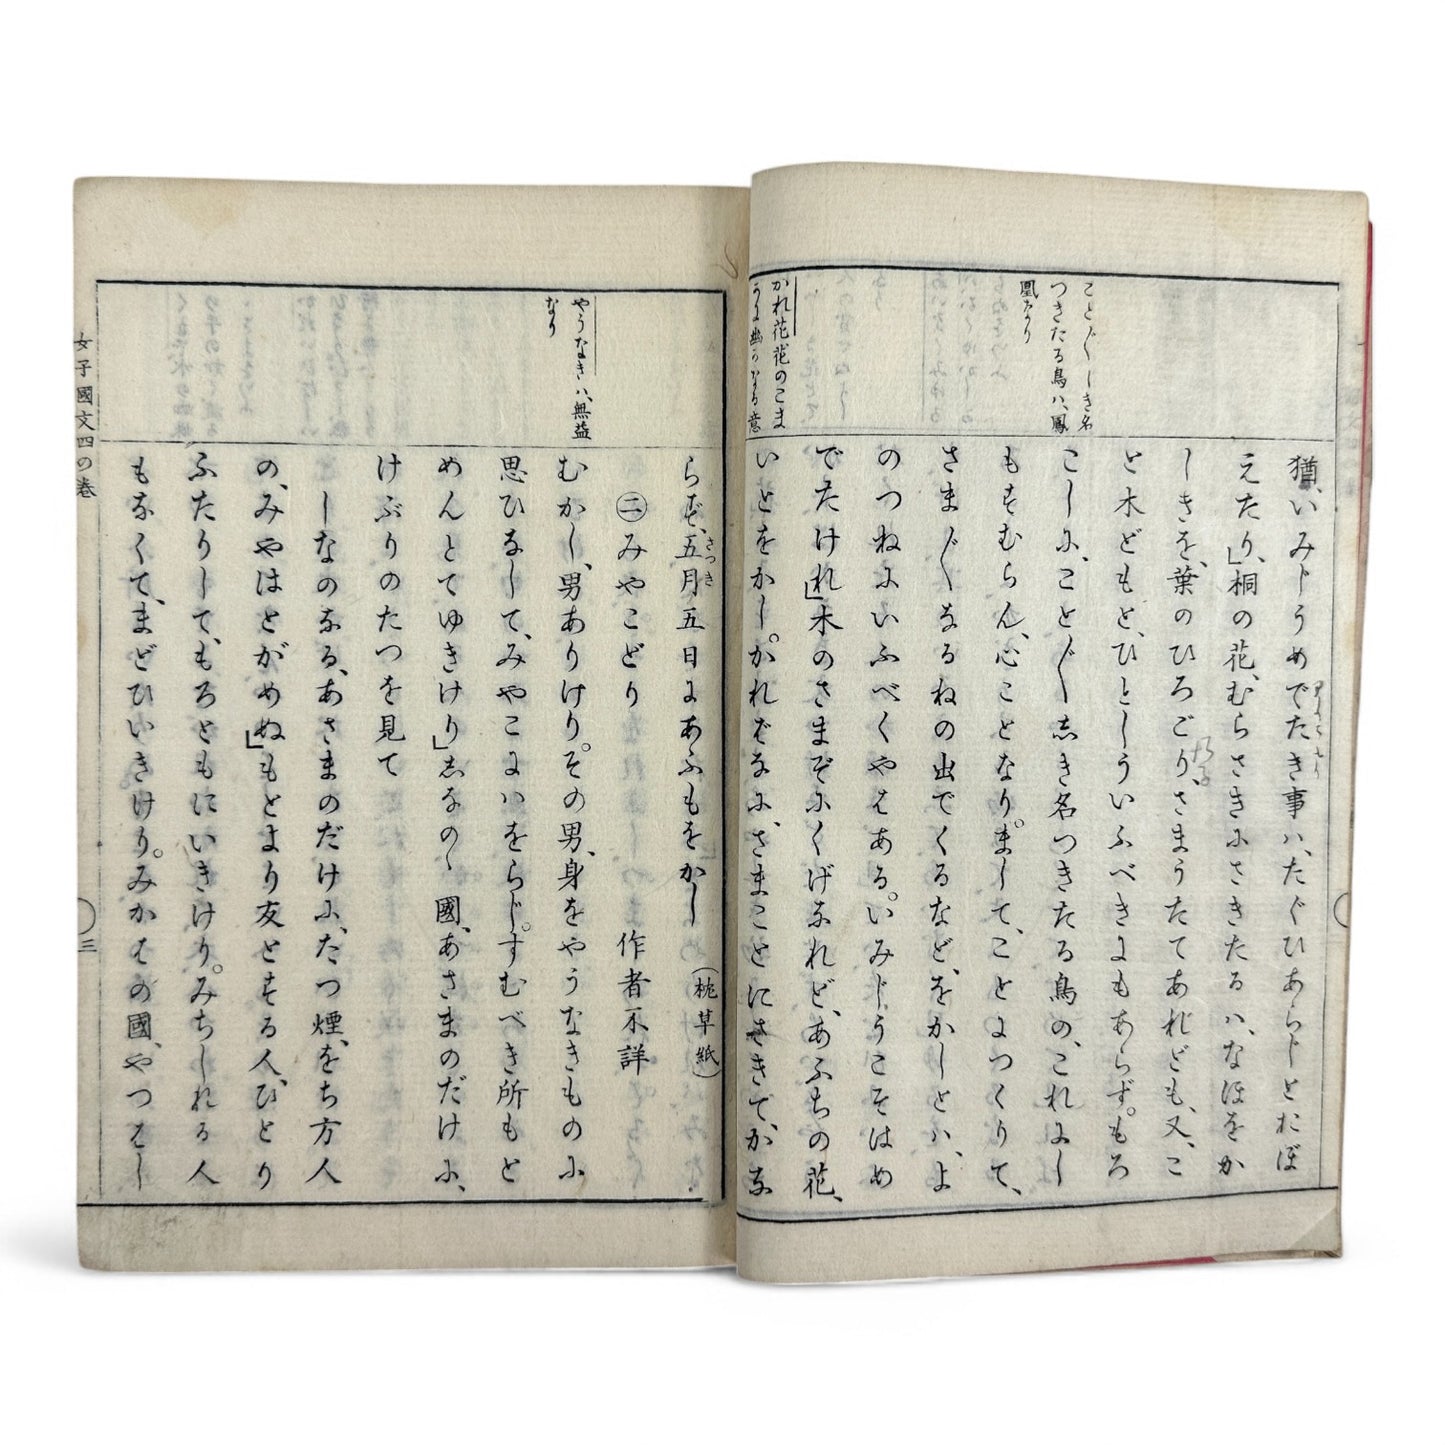 こと〴〵しき名
つきたる鳥ハ、鳳
凰なり
かれ花
なる意
猶、いみじうめでたき事ハ、たぐひあらじとおぼ
えたり」桐の花、むらさきにさきたるハ、なほをか
しきを、葉のひろごり、さまうたてあれども、又、こ
と木どもと、ひとしういふべきにもあらず。もろ
こしに、こと〴〵しき名つきたる鳥の、これにし
もすむらん、心ことなり。まして、ことにつくりて、
さま〴〵なるねの出でくるなど、をかしとハ、よ
のつねにいふべくやはある。いみじうこそはめ
でたけれ」木のさまぞにくげなれど、あふちの花、
いとをかし。かればなに、さまことにさきて、かな
やうなきハ、無益
なり
らず、五月五日にあふもをかし(枕草紙)
さつき
㊁みやこどり 作者不詳
むかし、男ありけり。その男、身をやうなきものに
思ひなして、みやこにハをらじ。すむべき所もと
めんとてゆきけり」しなのゝ國、あさまのだけに、
けぶりのたつを見て
しなのなる、あさまのだけに、たつ煙、をち方人
の、みやはとがめぬ」もとより友とする人、ひとり
ふたりして、もろともにいきけり。みちしれる人
もなくて、まどひいきけり。みかはの國、やつはし
女子國文四の卷
三